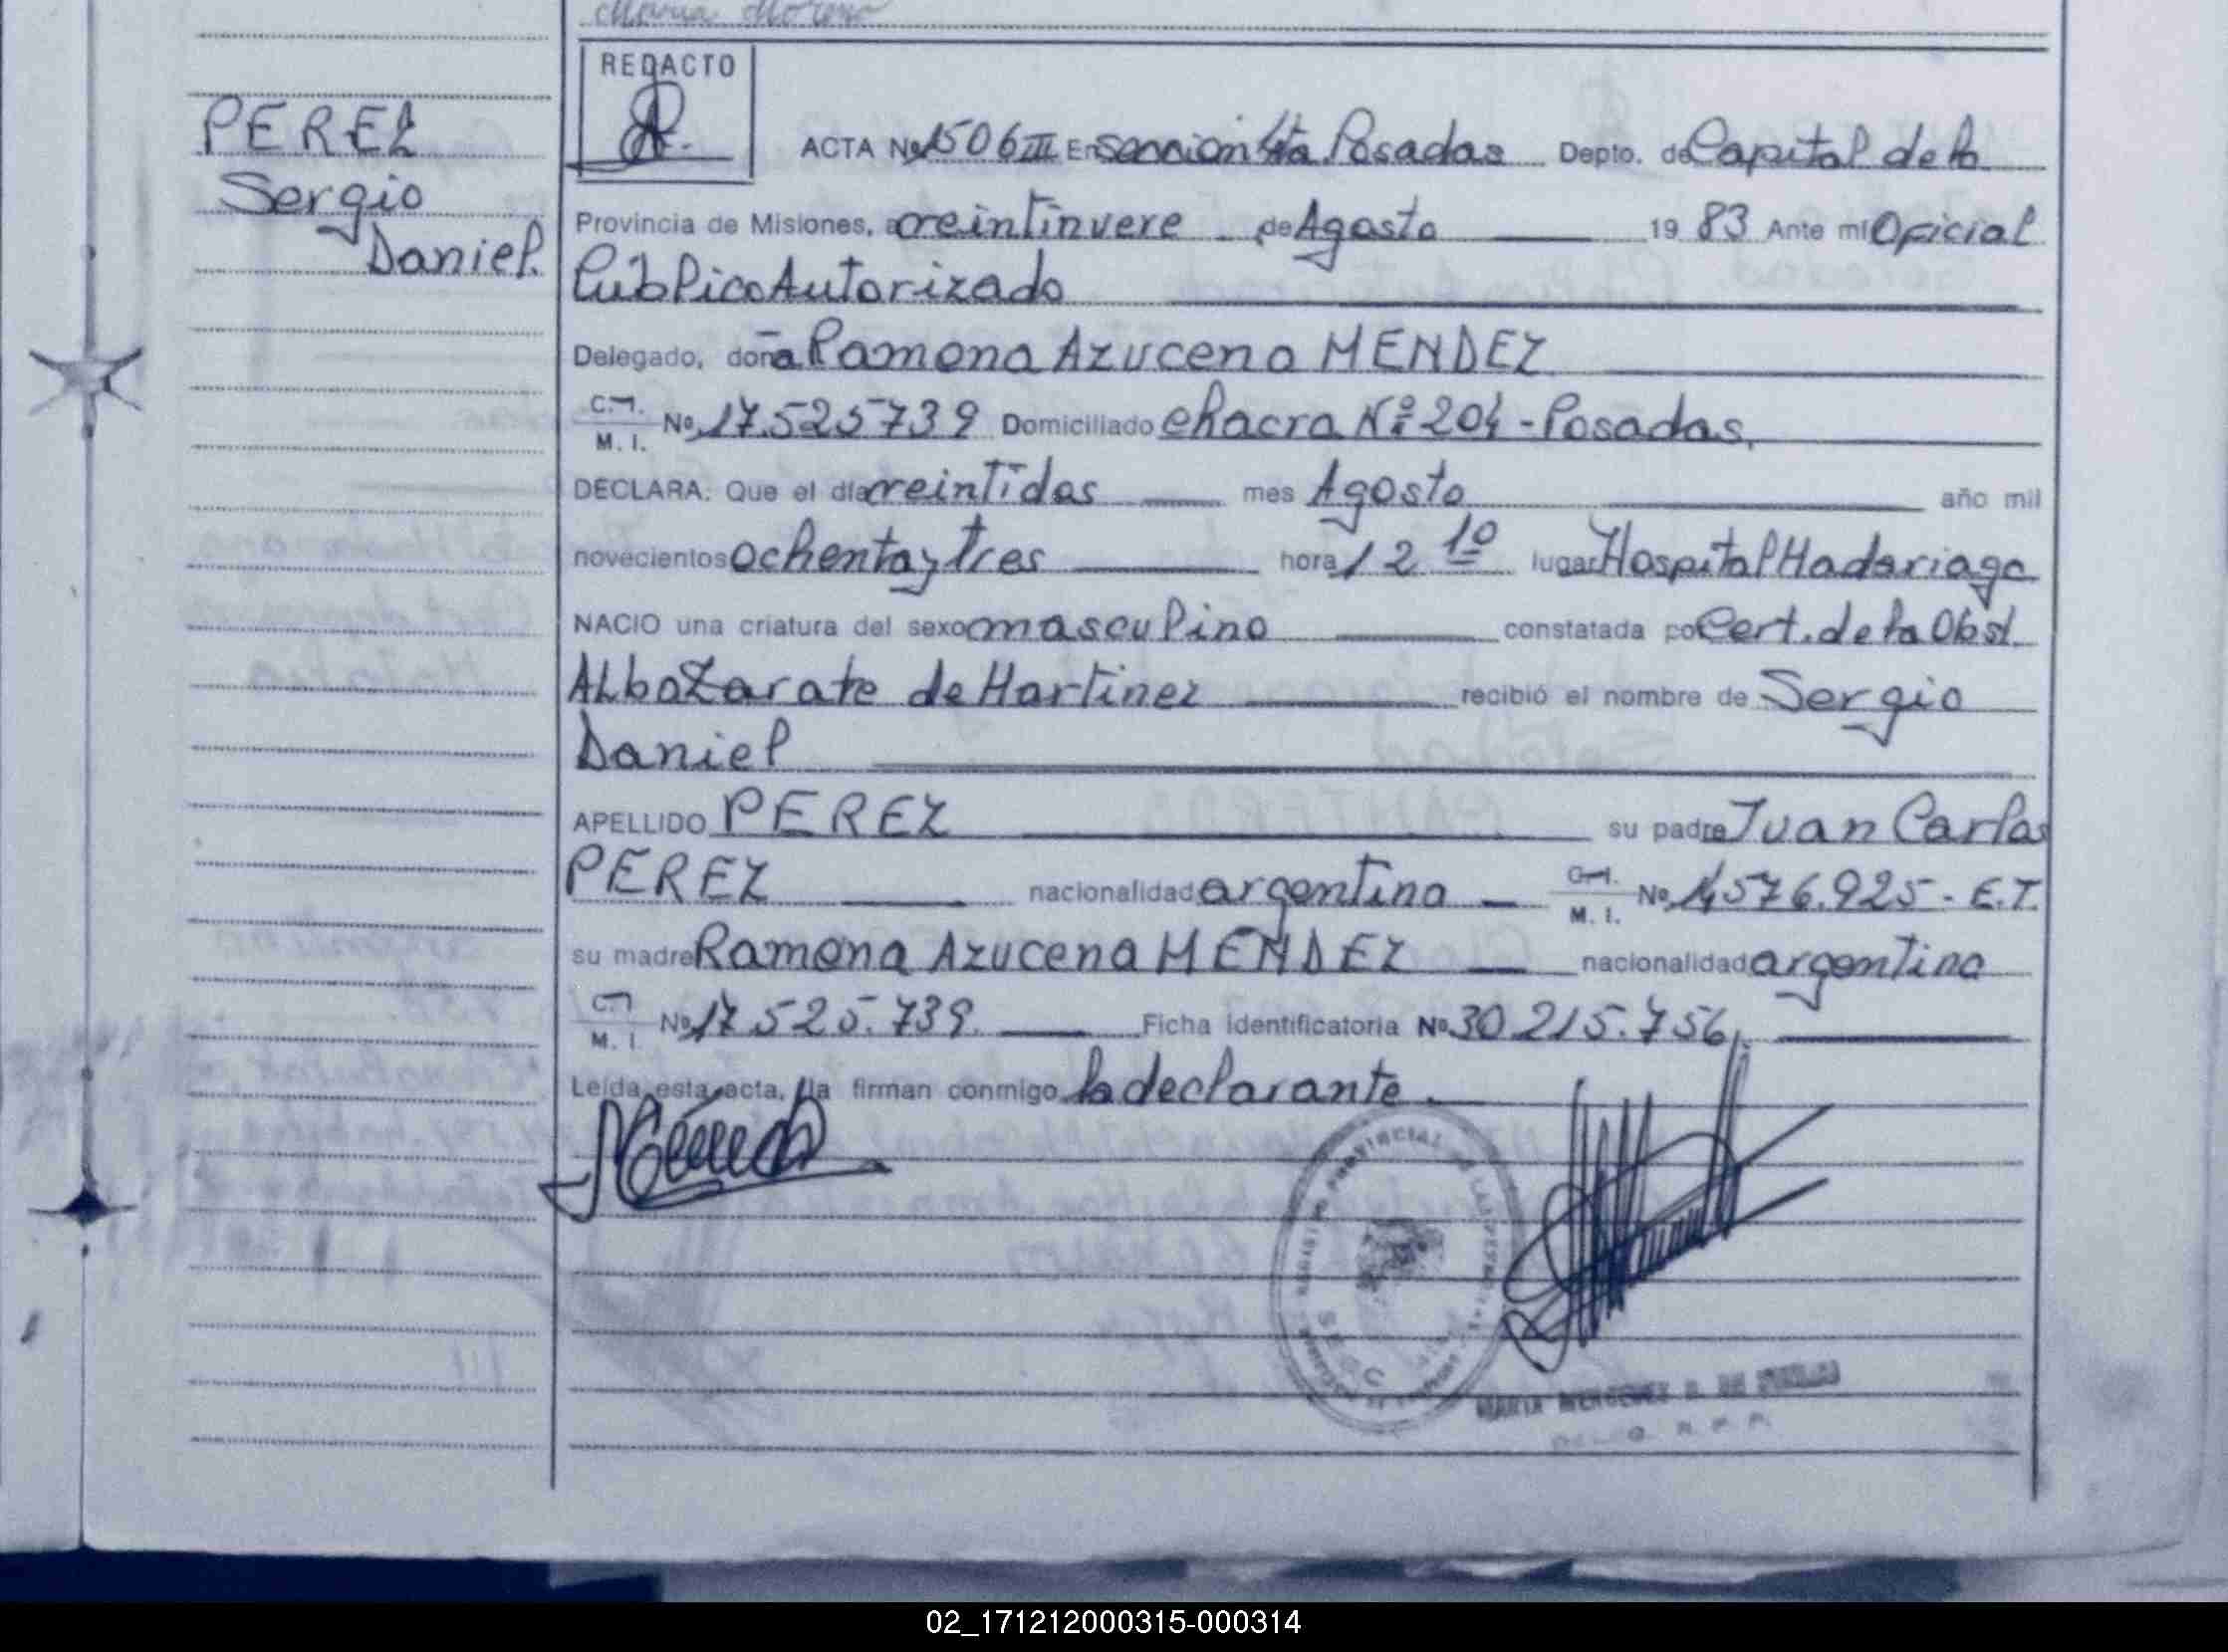 Maria Moreno
REDACTO
PEREZ
Sergio
Daniel.
ACTA Nº 1506 III En sección 4ta Posadas Depto. de Capital de la
Provincia de Misiones, a veintinueve de Agosto 19 83 Ante mí Oficial
Público Autorizado
Delegado, doña Ramona Azucena MENDEZ
C.I.
M. I. Nº 17.525739 Domiciliado chacra Nº 204 - Posadas,
DECLARA: Que el día veintidos mes Agosto año mil
novecientos ochenta y tres hora 12 10 lugar Hospital Madariaga
NACIO una criatura del sexo masculino constatada po Cert. de la Obst.
Alba Zarate de Martinez recibió el nombre de Sergio
Daniel
APELLIDO PEREZ su padre Juan Carlos
PEREZ nacionalidad argentina C.I.
M. I. Nº 14576.925 - E.T.
su madre Ramona Azucena MENDEZ nacionalidad argentina
C.I.
M. I. Nº 17.525.739. Ficha identificatoria Nº 30 215.756,
Leída esta acta, la firman conmigo la declarante.
REGISTRO PROVINCIAL DE LAS PERSONAS
MARIA DE
02_171212000315-000314